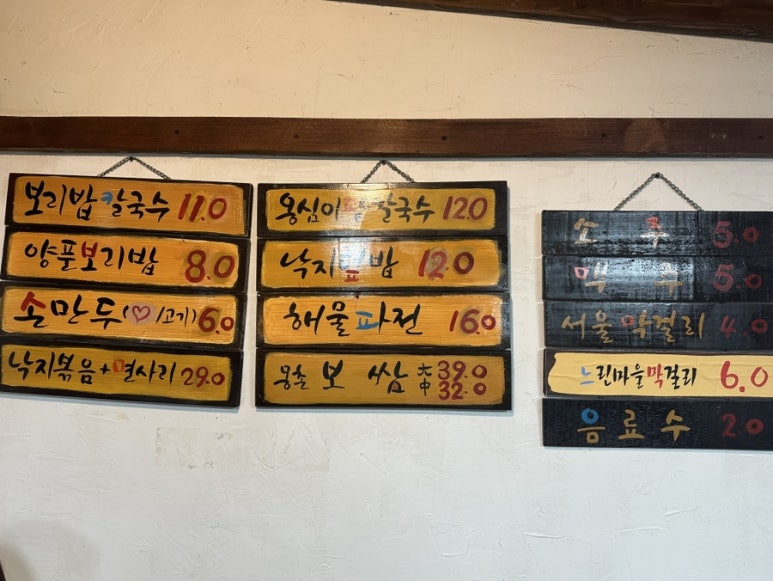 보리밥칼국수 11.0
양푼보리밥 8.0
손만두(♡/고기) 6.0
낙지볶음+면사리 29.0
옹심이칼국수 12.0
낙지밥 12.0
해물파전 16.0
보쌈 大 39.0
中 32.0
소주 5.0
맥주 5.0
서울막걸리 4.0
느린마을막걸리 6.0
음료수 2.0